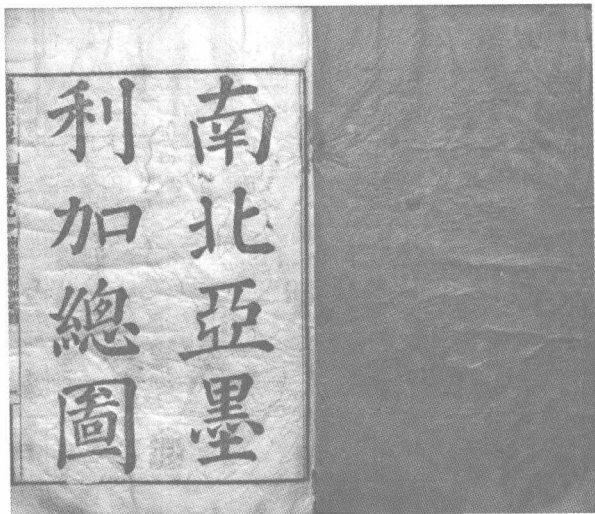 南北亞墨
利加總圖